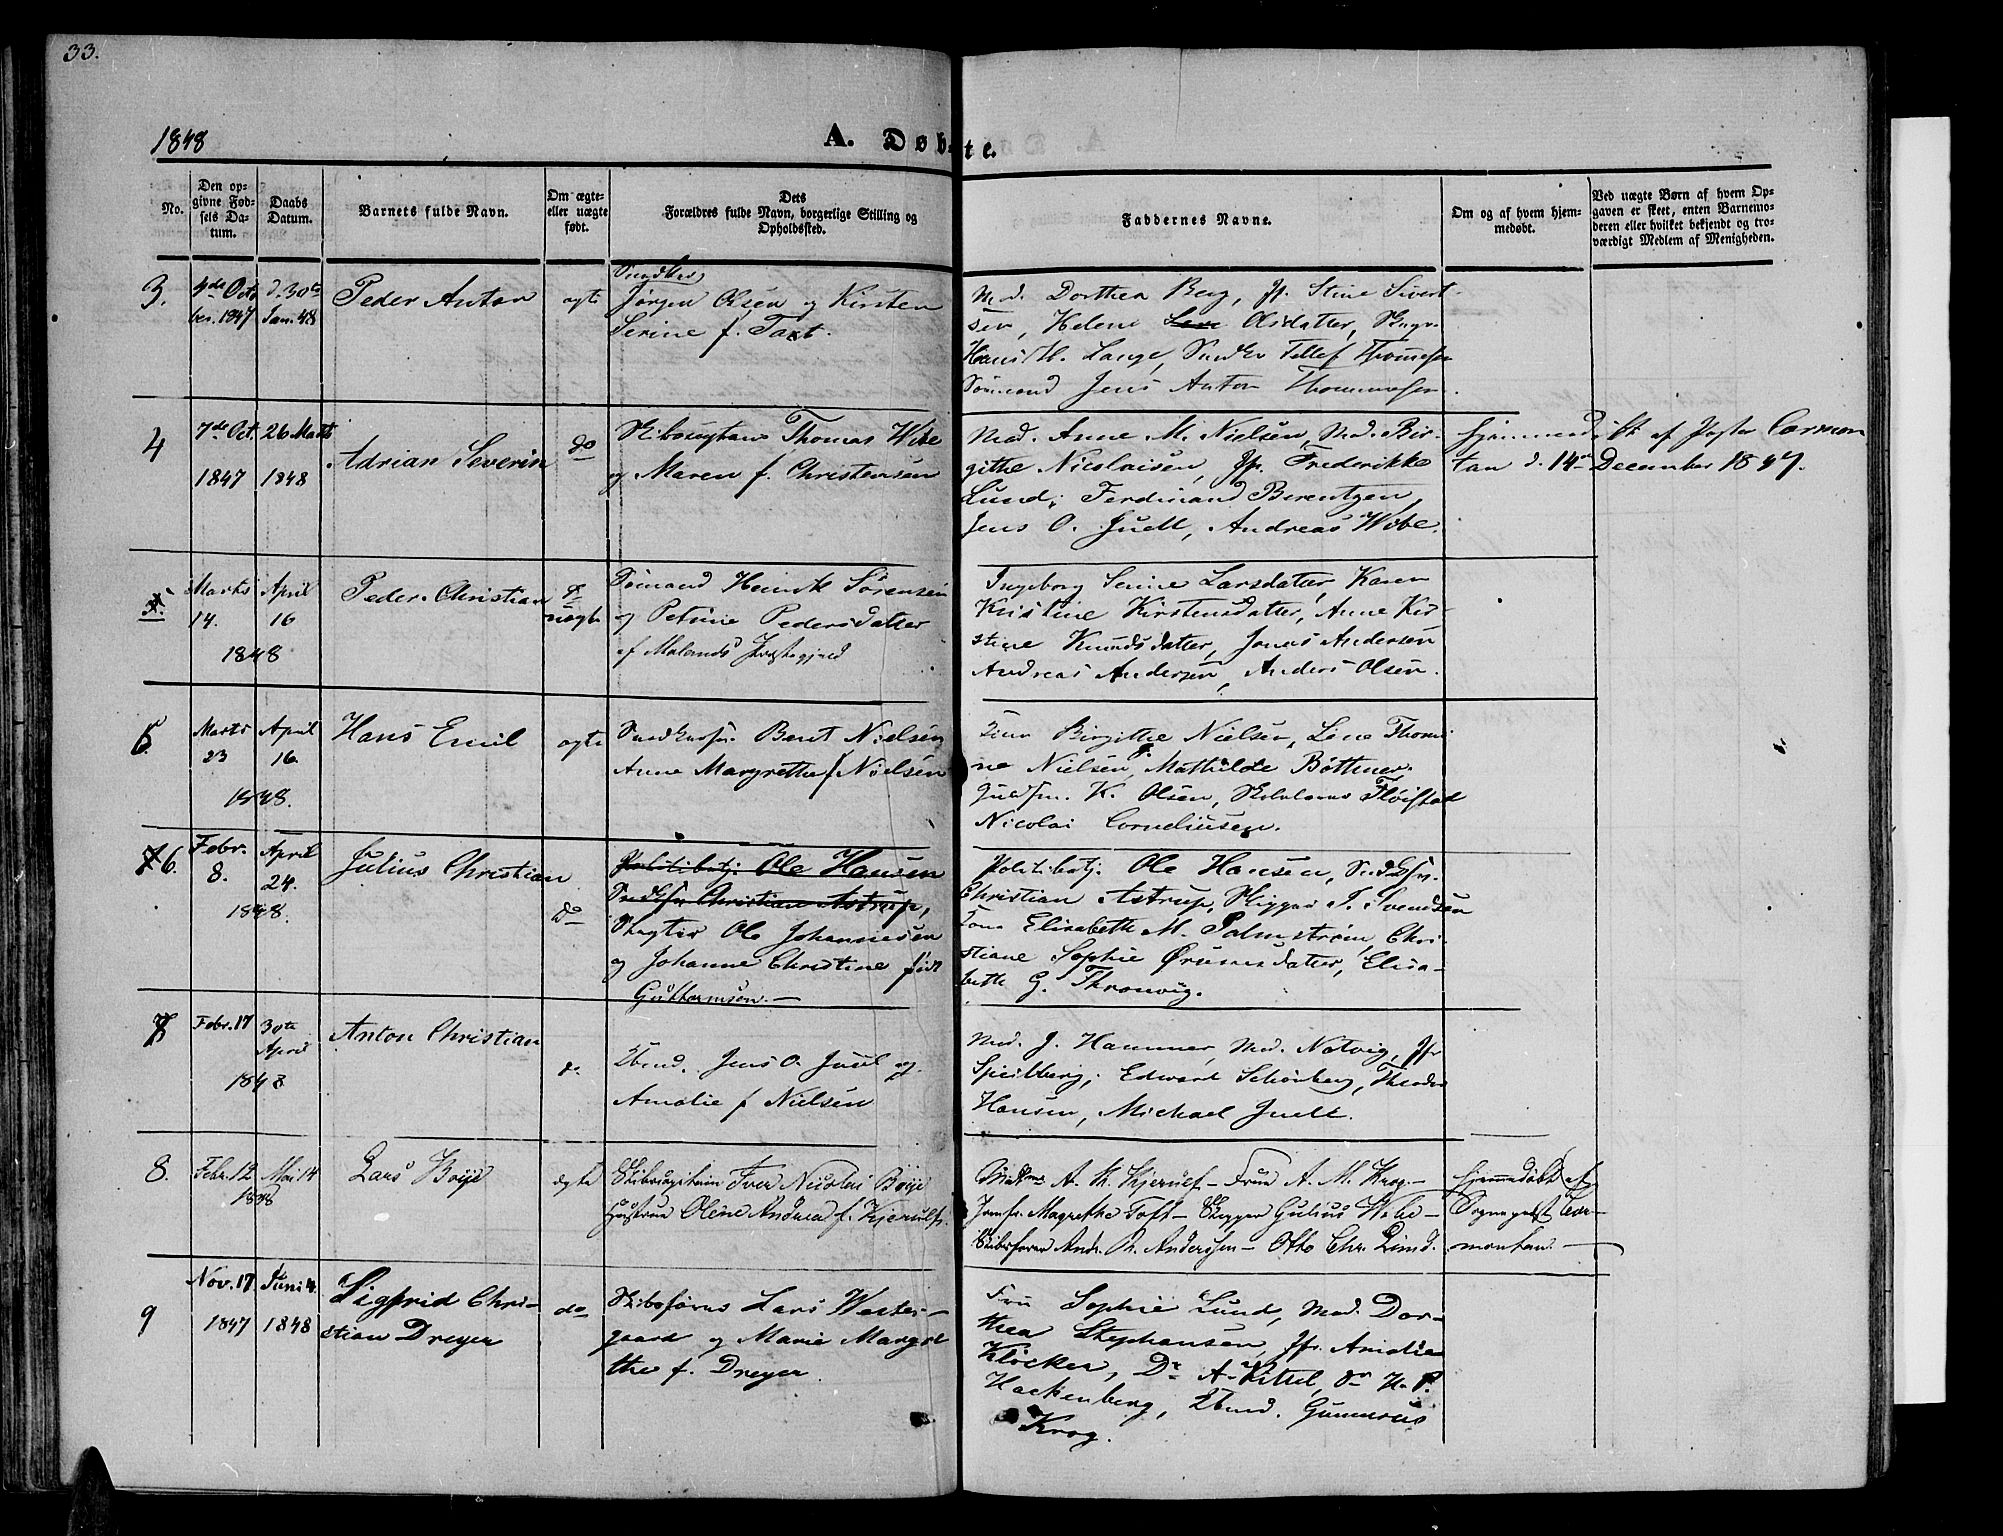 33.
1848
A. Døbte.
No.
Den op-
givne Fød-
sels Da-
tum.
Daabs
Datum.
Barnets fulde Navn.
Om ægte-
eller uægte
født.
Dets
Forældres fulde Navn, borgerlige Stilling og
Opholdssted.
Faddernes Navne.
Om og af hvem hjem-
medøbt.
Ved uægte Børn af hvem Op-
gaven er skeet, enten Barnemo-
deren eller hvilket bekjendt og tro-
værdigt Medlem af Menigheden.
3.
4de Octo
ber. 1847
d. 30te
Jan. 48
Peder Anton
ægte
Jørgen Olsen og Kirsten
Serine f. Taxt.
Mad. Dorthea Berg, Jfr. Stine Sivert-
sen, Helene Olsdatter,
Hans H. Lange, Tellef Thomesen
Sømand Jens Anton Thommesen.
4
7de Oct.
1847
26 Marts
1848
Adrian Severin
do
Thomas Wibe
og Maren f. Christensen
Mad. Anne M. Nielsen, Mad. Bir-
githe Nicolaisen, Jfr. Frederikke
Lund, Ferdinand Berentzen,
Jens O. Juell, Andreas Wibe.
hjemmedøbt af Pastor Carmon
tan d. 14 December 1847.
5.
Marts
14.
April
16
1848
Peder Christian
uægte
Sømand Henrik Sörensen
og Petrine Pedersdatter
af Molands Præstegjeld
Ingeborg Serine Larsdatter, Karen
Kristine Kirstensdatter, Anne Kir-
stine Knudsdatter, Jonas Andersen
Andreas Andersen, Anders Olsen.
6.
Marts
23
April
16.
1848.
Hans Emil
ægte
Bent Nielsen
Anne Margrethe f Nielsen
Birgithe Nielsen, Lene Thomi
ne Nielsen, Mathilde Böttner.
Guldsm. K. Olsen, Fløistad
Nicolai Corneliusen.
6.
Febr.
8.
April
24.
1848.
Julius Christian
do
Politibetj. Ole Hansen
Christian Astrup,
Slagter Ole Johannesen
og Johanne Christine født
Guttormsen.
Politibetj. Ole Hansen,
Christian Astrup, Skipper J. Svendsen
Elisabeth M. Palmstrøm, Chri-
stiane Sophie Datter, Elisa-
beth G. Thronvig.
7
Febr. 17
30te
April
1848
Anton Christian
do
Jens O. Juul og
Amalie f Nielsen
Mad. J. Hammer, Mad. Natvig, Jfr
Speilberg, Edward Schönberg, Theodor
Hansen, Michael Juell.
8.
Febr. 12
Mai 14
1848
Lars Boÿe
ægte
Iver Nicolai Boÿe
Hustrue Olene Andrea f. Kjerulf.
A. K. Kjerulf – Frue A. M. Krog –
Jomfr. Magrethe Toft – Skipper Gulius Wibe –
Skibsfører Andr. Anderssen – Otto Chr. Lind.
hjemmedøbt af
Sognepræst Car-
montan.
9
Nov. 17
1847
Juni 4.
1848
Sigfrid Chri-
stian Dreyer
do
Skibsfører Lars Wester-
gaard og Marie Margre
the f. Dreyer.
Fru Sophie Lund, Mad. Dor-
thea Stephansen, Jfr. Amalie
Klöcker, Dr A. Kittel, H. P.
Hackenberg, Gunerus
Krog.